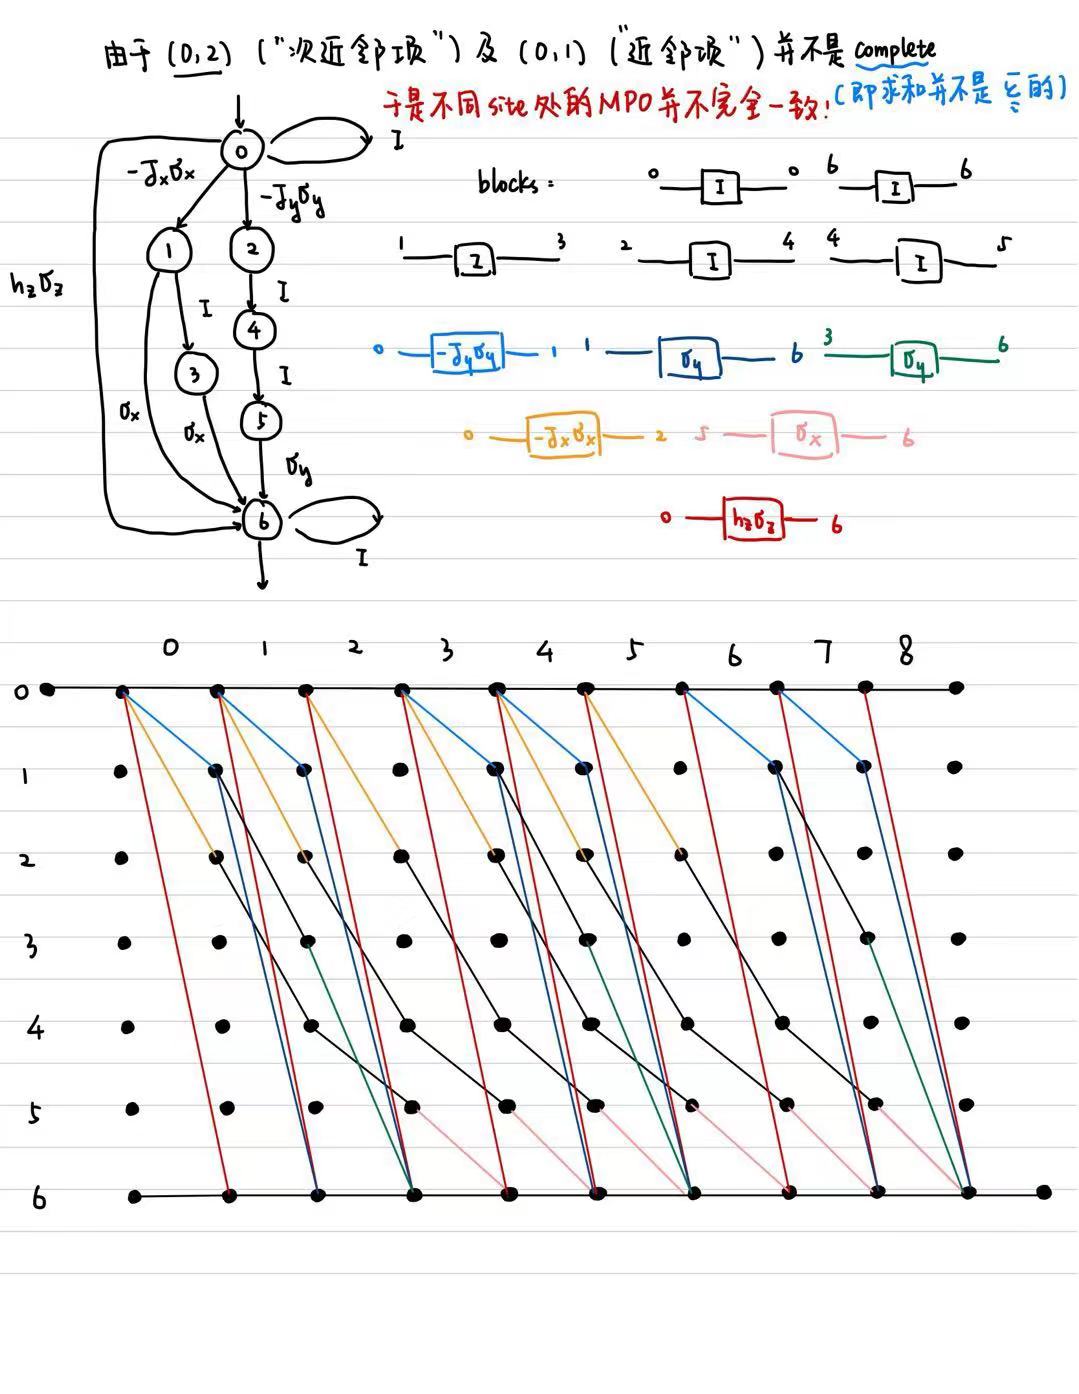 由于 (0,2) ("次近邻项") 及 (0,1) ("近邻项") 并不是 complete
于是不同 site 处的 MPO 并不完全一致! (即求和并不是 Σ 的)
0
I
-Jxσx
-Jyσy
1
2
hzσz
I
I
4
3
I
σx
σx
5
σy
6
I
blocks:
0 I 0 6 I 6
1 I 3 2 I 4 4 I 5
0 -Jyσy 1 1 σy 6 3 σy 6
0 -Jxσx 2 5 σx 6
0 hzσz 6
0 1 2 3 4 5 6 7 8
0
1
2
3
4
5
6